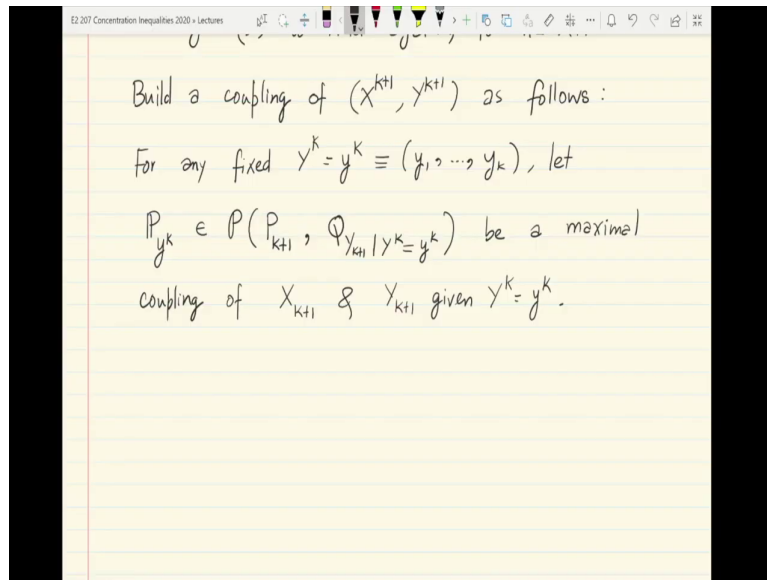 E2 207 Concentration Inequalities 2020 » Lectures
Build a coupling of (X^{k+1}, Y^{k+1}) as follows :
For any fixed Y^k = y^k ≡ (y_1, ..., y_k), let
P_{y^k} ∈ P(P_{k+1}, Q_{Y_{k+1}|Y^k=y^k}) be a maximal
coupling of X_{k+1} & Y_{k+1} given Y^k = y^k.